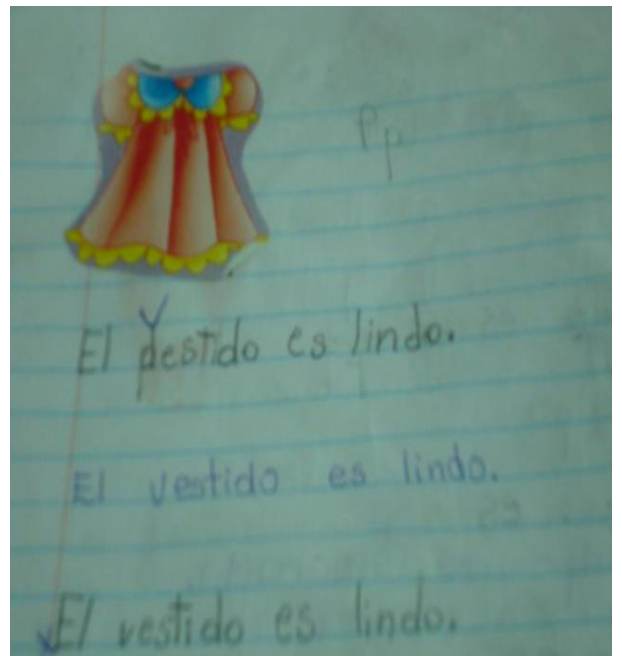 Pp
V
El pestido es lindo.
El vestido es lindo.
El vestido es lindo.